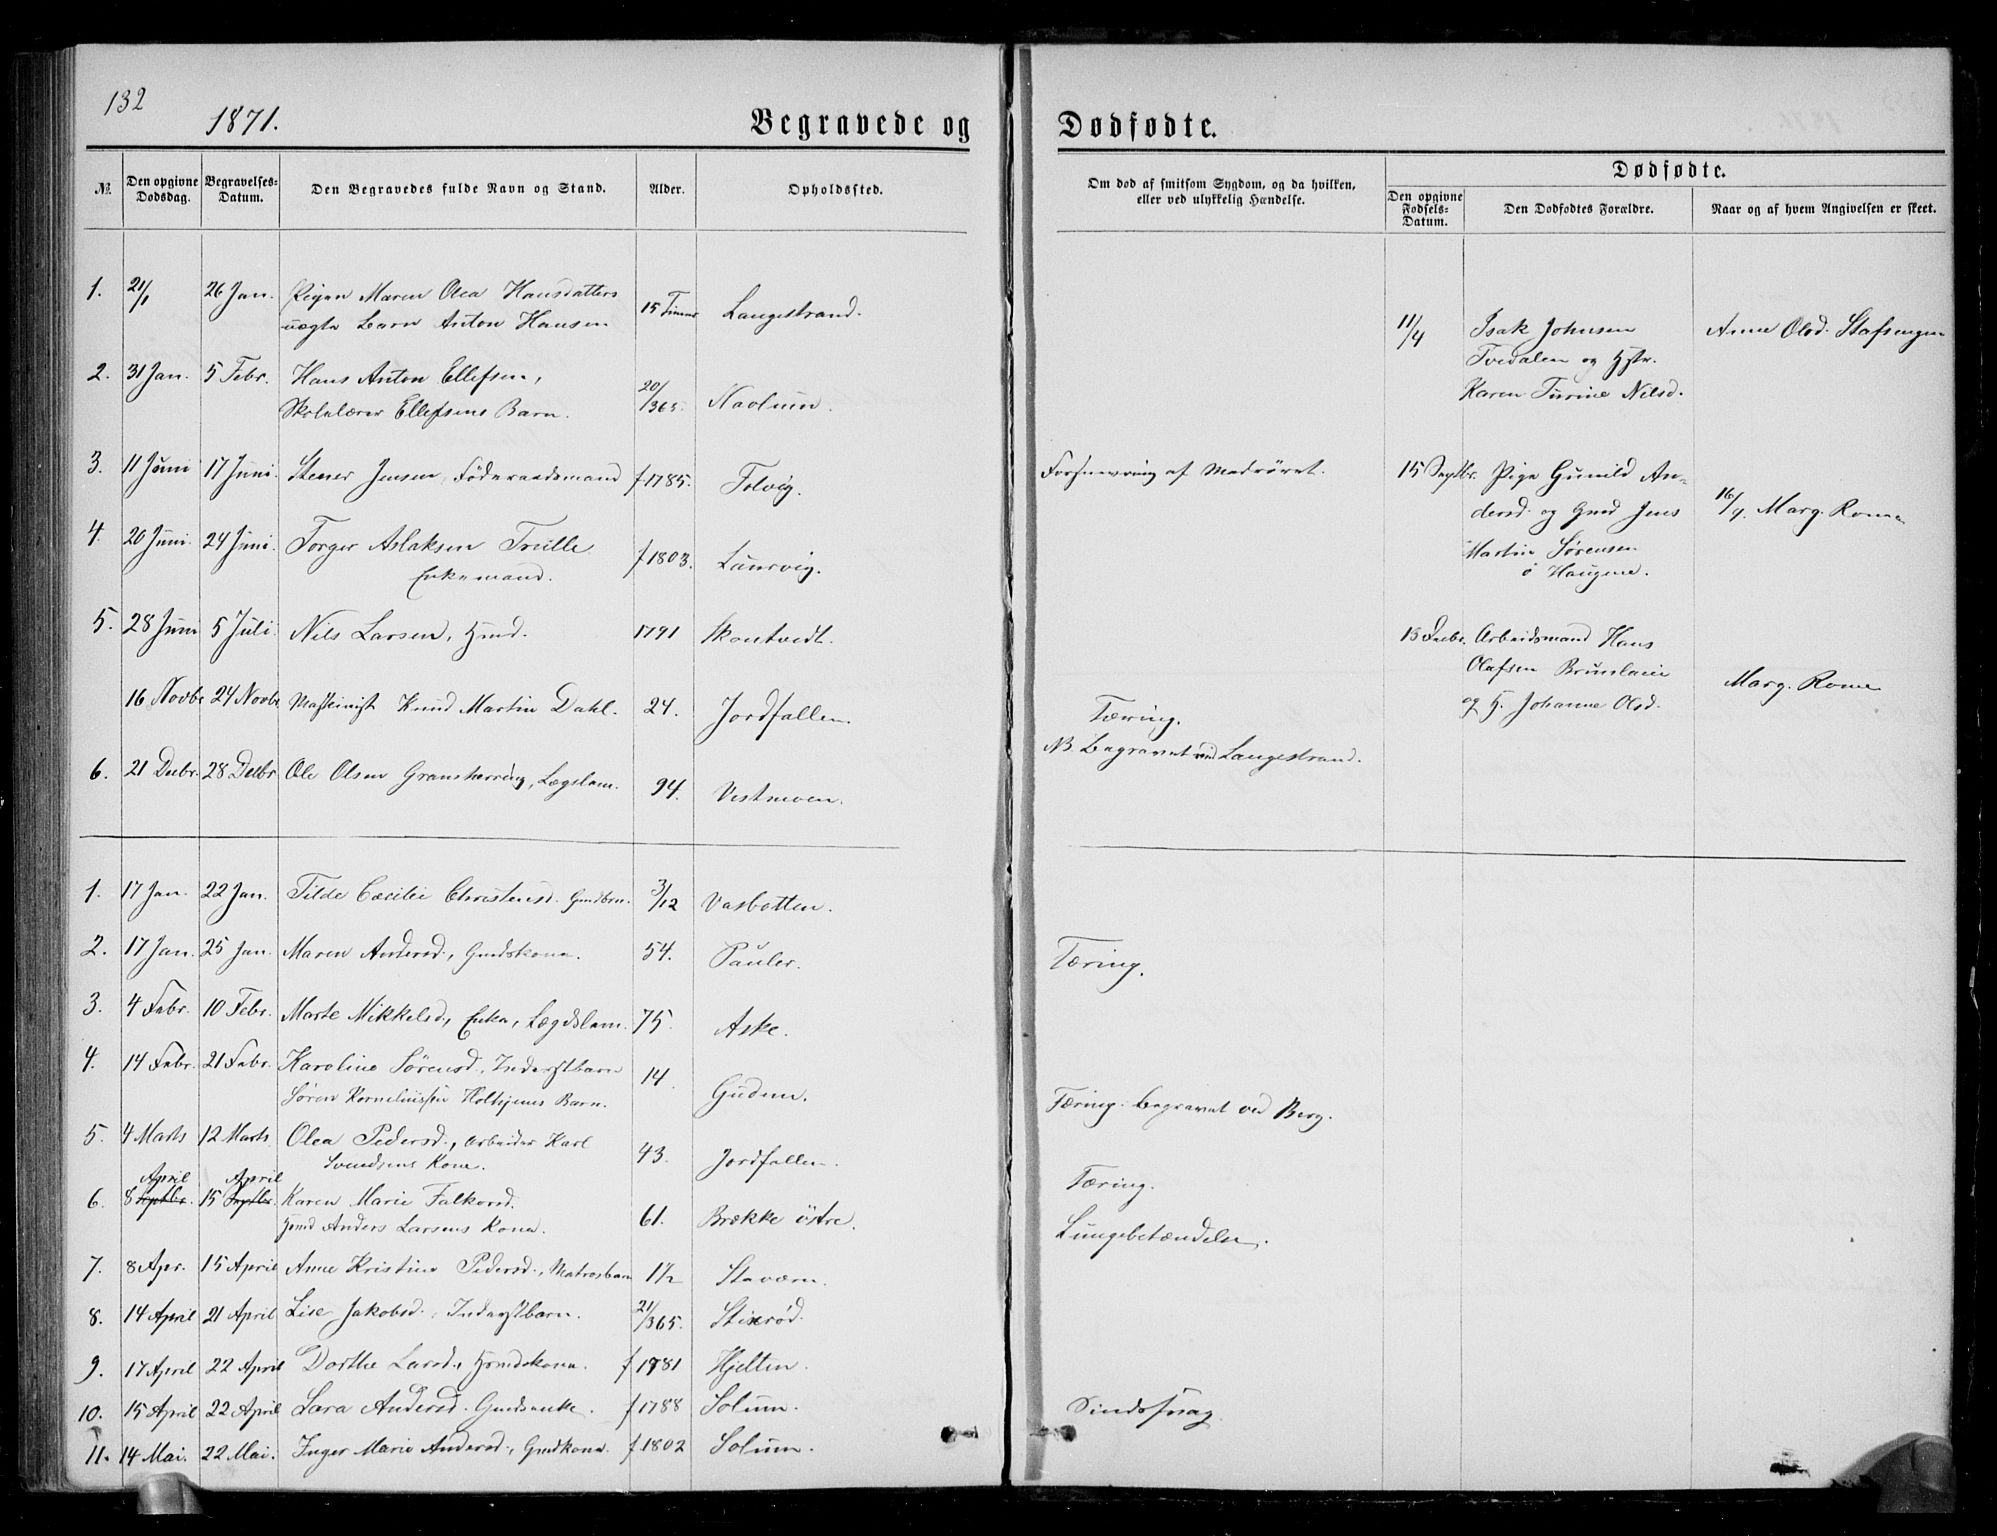 132
1871.
Begravede og
№
Den opgivne Dødsdag.
Begravelses-Datum.
Den Begravedes fulde Navn og Stand.
Alder.
Opholdssted.
1. 21/1 26 Jan. Pigen Maren Olea Hansdatters 15 Timer Langestrand.
uægte Barn Anton Hansen
2. 31 Jan. 5 Febr. Hans Anton Ellefsen, 20/365 Navlum.
Skolelærer Ellefsens Barn.
3. 11 Juni 17 Juni. Stener Jensen, Föderaadsmand f 1785. Tolvig.
4. 20 Juni. 24 Juni. Torger Aslaksen Treille f 1803. Laurvig.
Enkemand.
5. 28 Juni 5 Juli. Nils Larsen, Hmd. 1791 Skontvedt.
16 Novbr 24 Novbr Maskinist Knud Martin Dahl. 24. Jordfallen.
6. 21 Decbr. 28 Decbr Ole Olsen Gransherring, Lægslem. 94. Vestmoen.
1. 17 Jan. 22 Jan. Tilde Cæcilie Christensd. Gmdbrn. 3/12 Vasbotten.
2. 17 Jan. 25 Jan. Maren Andersd., Gmdskone. 54. Pauler.
3. 4 Febr. 10 Febr. Marte Mikkelsd., Enke, Lægdslem. 75. Aske.
4. 14 Febr. 21 Febr. Karoline Sørensd., Inderstbarn 14. Gudem.
Sören Korneliussen Holhjems Barn.
5. 4 Marts 12 Marts. Olea Pedersd., Arbeider Karl 43. Jordfallen.
Svendsens Kone.
April April
6. 8 Septbr. 15 Septbr. Karen Marie Falkorsd. 61. Brække östre.
Hmd Anders Larsens Kone.
7. 8 Apr. 15 April Anne Kristine Pedersd., Matrosbarn 1 1/2 Staværn.
8. 14 April 21 April Lise Jakobsd. Inderstbarn. 21/365. Stixrød.
9. 17 April 22 April Dorthe Larsd., Hmdskone. f 1781 Hjelten.
10. 15 April 22 April Sara Andersd. Gmdsenke. f 1788 Solum.
11. 14 Mai. 22 Mai. Inger Marie Andersd., Gmdkone. f 1802 Solum.
Dødfødte.
Om død af smitsom Sygdom, og da hvilken,
eller ved ulykkelig Hændelse.
Dødfødte.
Den opgivne Fødsels-Datum.
Den Dødfødtes Forældre.
Naar og af hvem Angivelsen er skeet.
11/4 Isak Johnsen Anne Olsd. Stafsengen
Tvedalen og Hstr.
Karen Turine Nilsd.
Forsnevring af Madrøret. 15 Septbr. Pige Gunild An-
dersd. og Gmd Jens 16/9. Marg. Rome
Martin Sørensen
ö Haugene.
13 Decbr. Arbeidsmand Hans
Olafsen Brunlaie Marg. Rome
og H. Johanne Olsd.
Tæring.
NB. Begravet ved Langestrand.
Tæring.
Tæring. Begravet ved Berg.
Tæring.
Lungebetændelse.
Sindssvag.